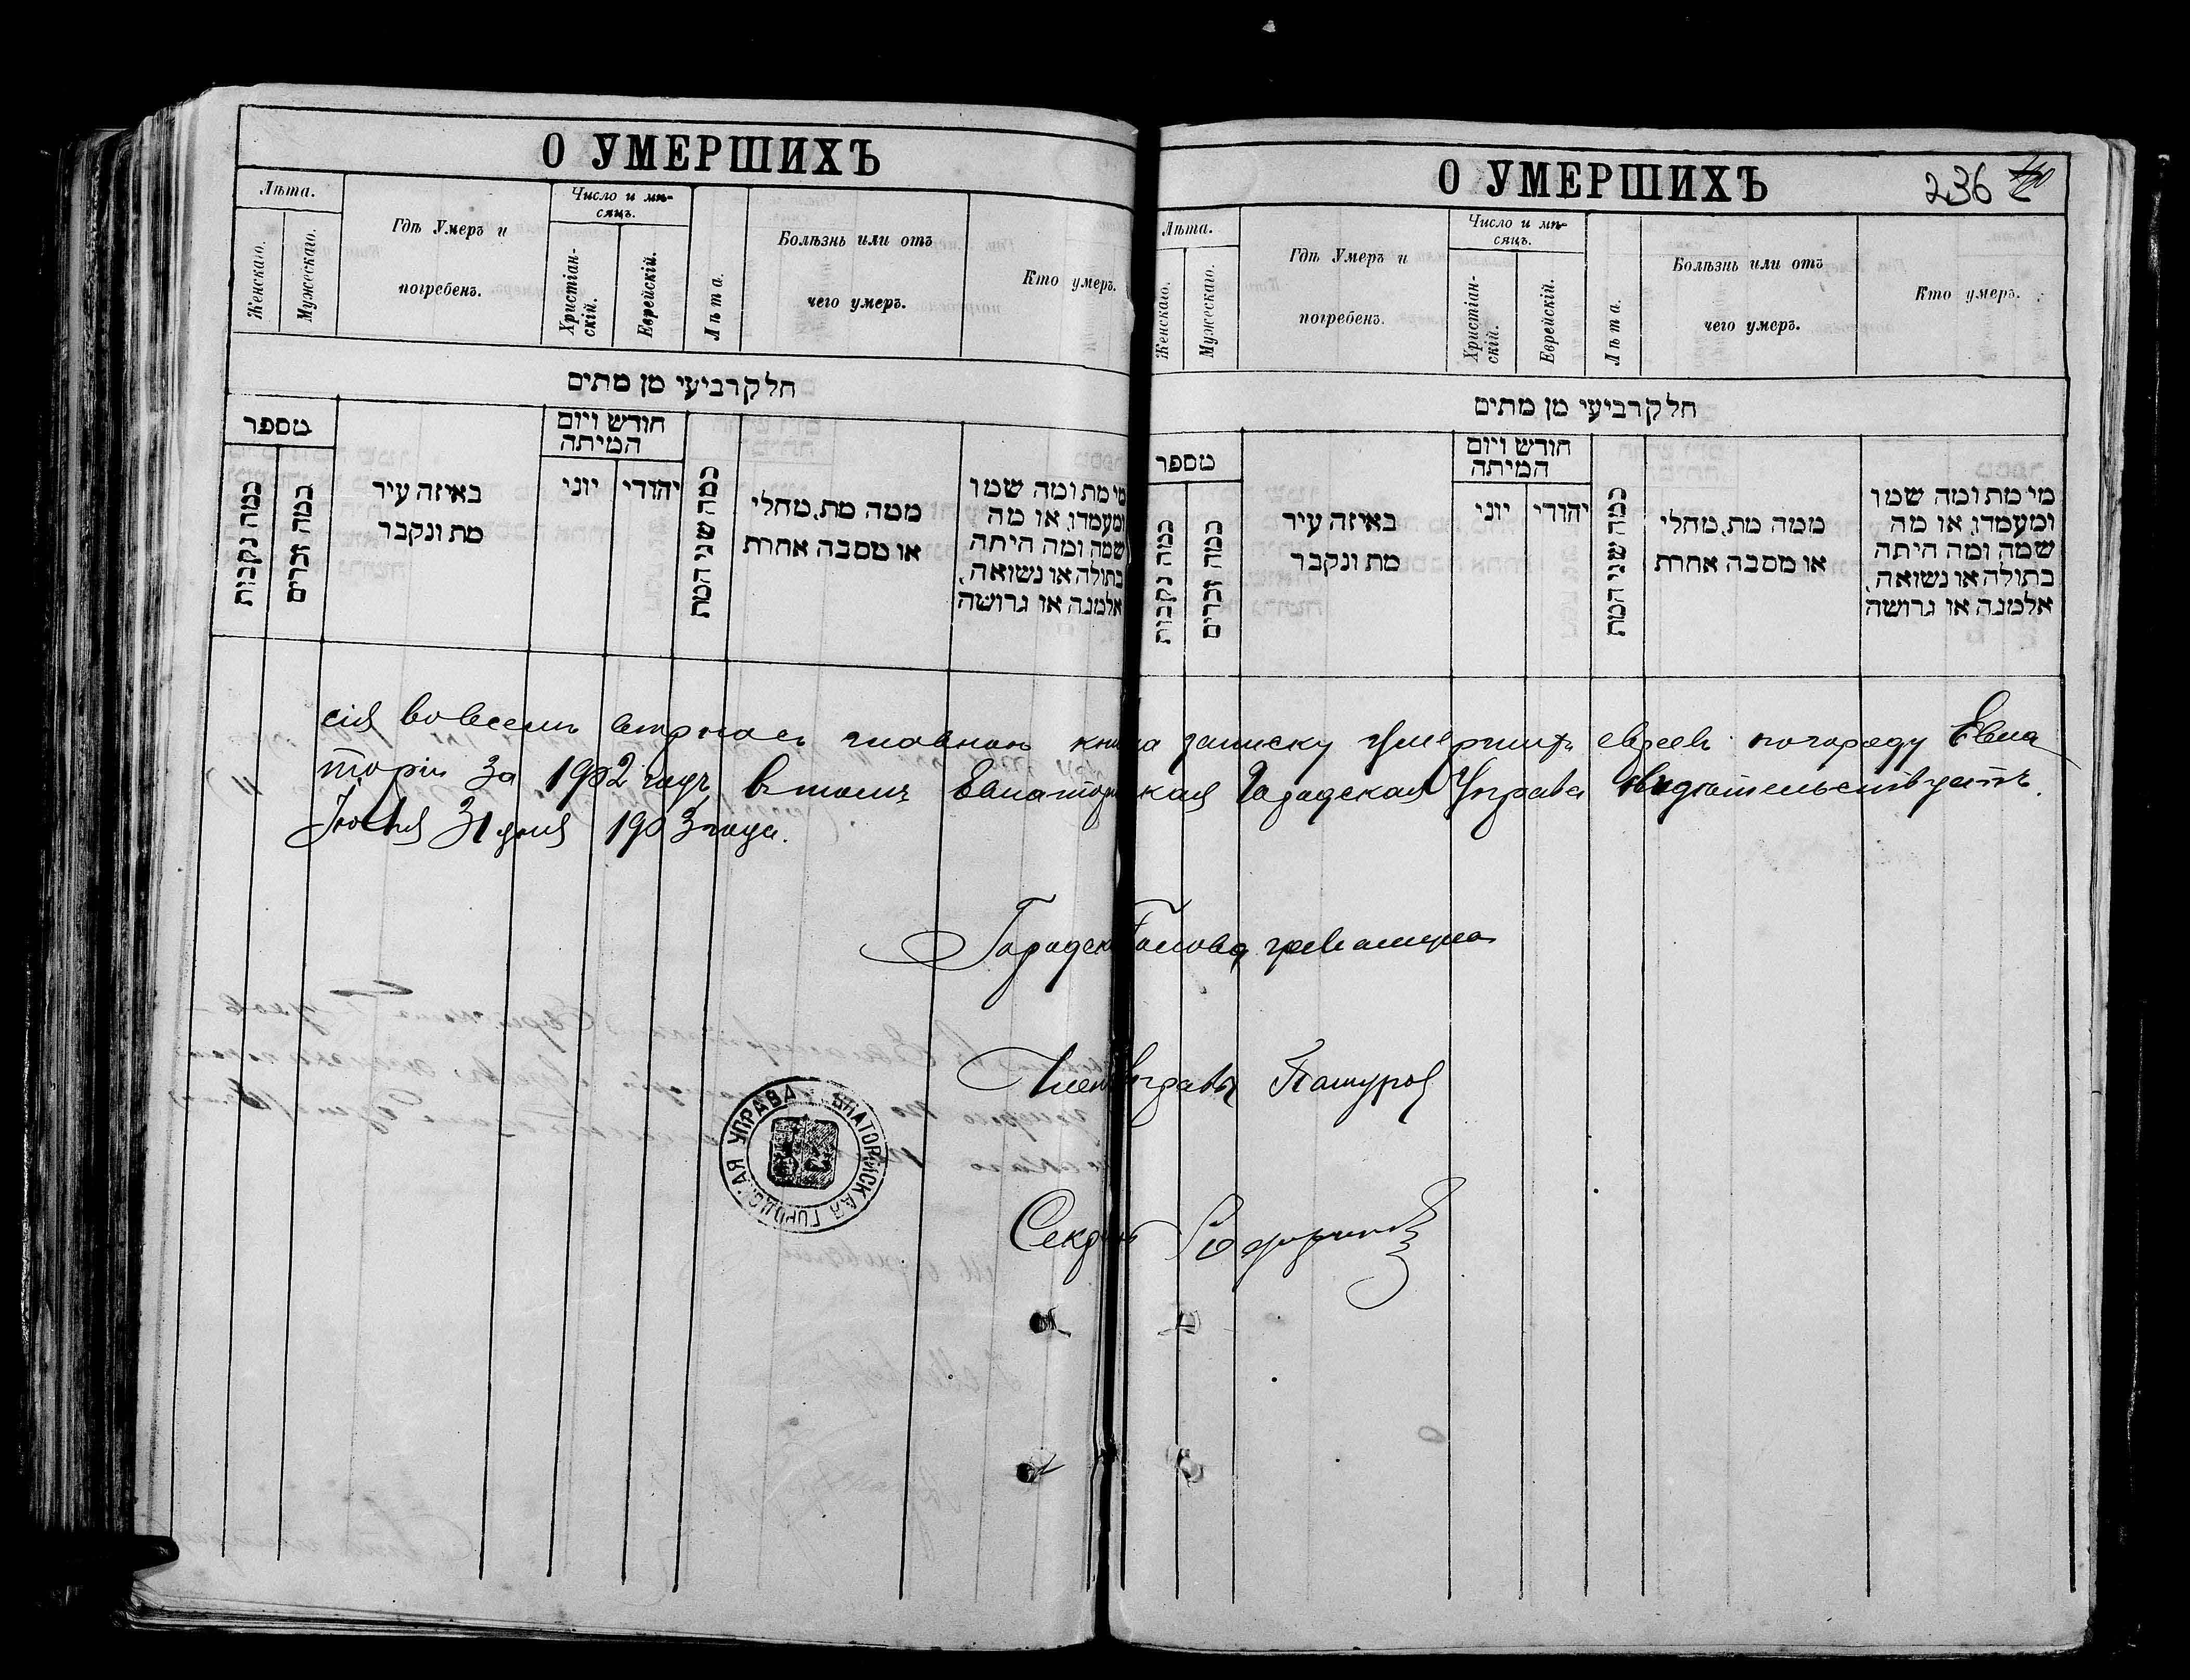 О УМЕРШИХЪ
Лѣта.
Женскаго.
Мужескаго.
Гдѣ Умеръ и
погребенъ.
Число и мѣ-
сяцъ.
Христіан-
скій.
Еврейскій.
Лѣта.
Болѣзнь или отъ
чего умеръ.
Кто умеръ.
חלק רביעי מן מתים
מספר
כמה נקבות
כמה זכרים
באיזה עיר
מת ונקבר
חודש ויום
המיתה
יוני
יהודי
כמה שני המת
ממה מת, מחלי
או מסבה אחרת
מי מת ומה שמו
ומעמדו, או מה
שמה ומה היתה
בתולה או נשואה,
אלמנה או גרושה
О УМЕРШИХЪ
236
Лѣта.
Женскаго.
Мужескаго.
Гдѣ Умеръ и
погребенъ.
Число и мѣ-
сяцъ.
Христіан-
скій.
Еврейскій.
Лѣта.
Болѣзнь или отъ
чего умеръ.
Кто умеръ.
חלק רביעי מן מתים
מספר
כמה נקבות
כמה זכרים
באיזה עיר
מת ונקבר
חודש ויום
המיתה
יוני
יהודי
כמה שני המת
ממה מת, מחלי
או מסבה אחרת
מי מת ומה שמו
ומעמדו, או מה
שמה ומה היתה
בתולה או נשואה,
אלמנה או גרושה
сія во всемъ книга записку умершихъ евреевъ по городу Евпа
торіи за 1902 годъ въ томъ Евпаторійская Городская Управа свидѣтельствуетъ.
31 дня 1903 года.
Городск Голова
Член Управы
Секр
ЕВПАТОРІЙСКАЯ ГОРОДСКАЯ УПРАВА